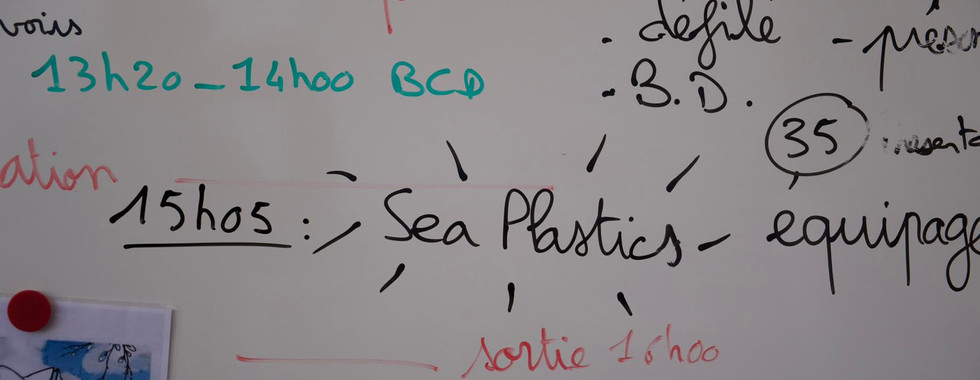 vois
défilé
13h20 - 14h00 BCD
. B.D.
35
ation
15h05 : Sea Plastics - equipage
sortie 16h00